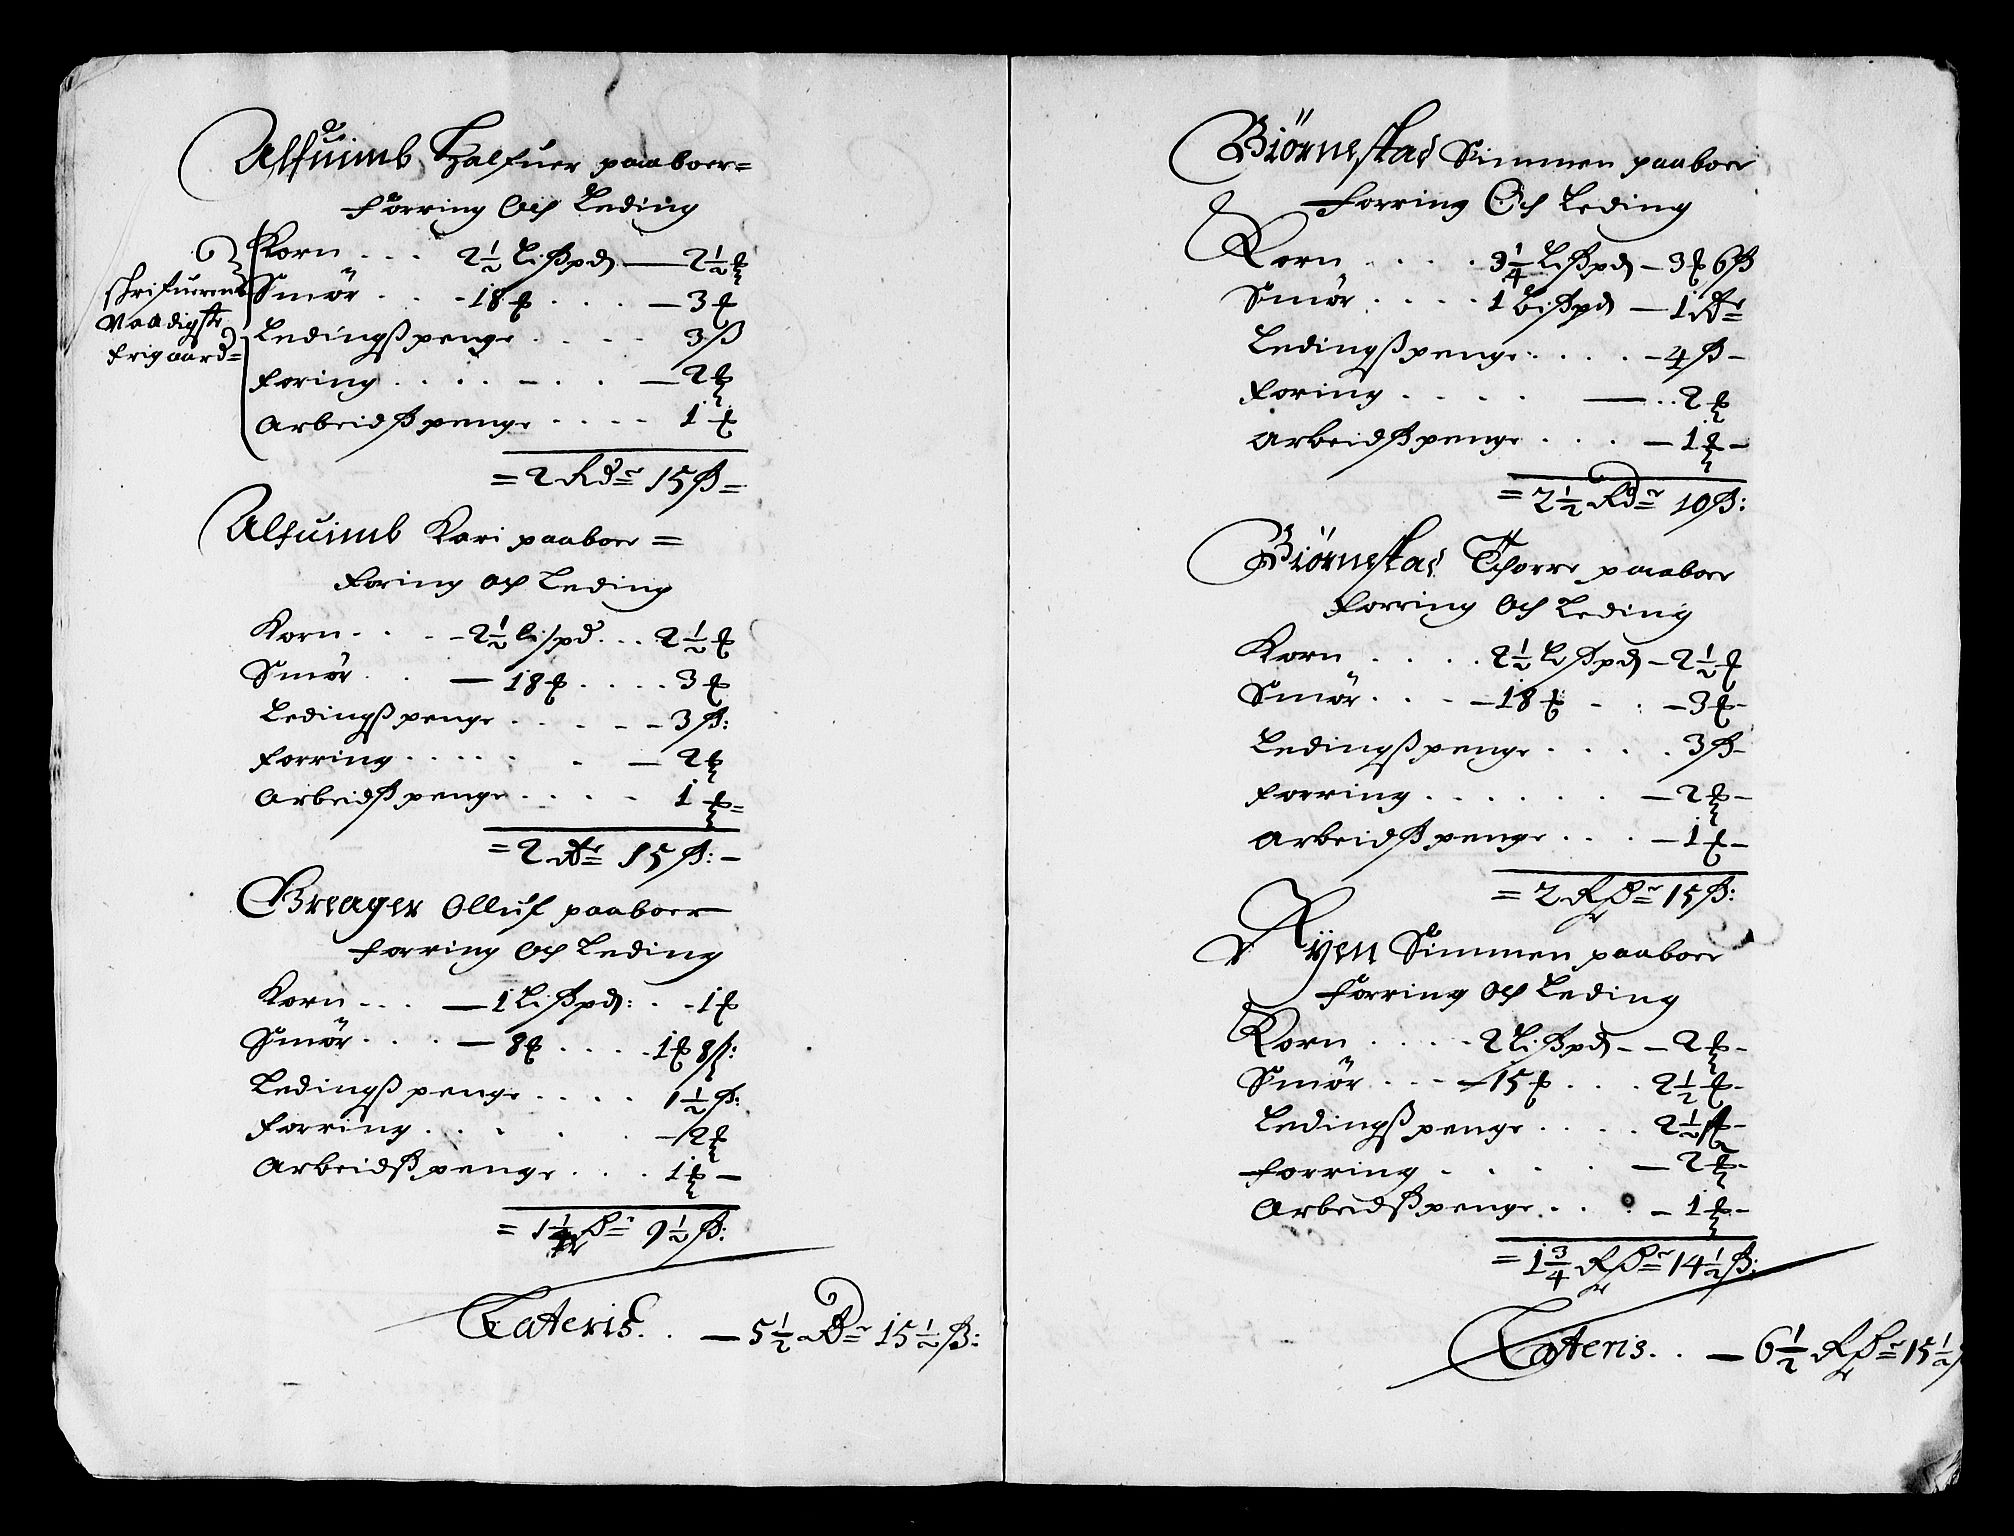 Alfuimb Halfuer paaboer=
Forring Och Leding
Korn . . . 2½ Lißpd — 2½ ℔
Smör . . . 18 ℔ . . . — 3 ℔
Ledingßpenge . . . . 3 ß
Foring . . . . — . . — 2 ℔
Arbeidßpenge . . . . 1 ℔
schrifuerens
Waadigste
frigaard=
= 2 Rdr 15 ß =
Alfuimb Kari paaboer =
Foring Och Leding
Korn . . . - 2½ lispd . . . 2½ ℔
Smör . . — 18 ℔ . . . . 3 ℔
Ledingßpenge . . . . . - 3 ß:
Forring . . . . . . — 2 ℔
Arbeidßpenge . . . . 1 ℔ =
= 2 Rdr 15 ß: -
Breager Olluf paaboer
Forring Och Leding
Korn . . . — 1 Lißpd: . . 1 ℔
Smör . . . . — 8 ℔ . . . . 1 ℔ 8 ß:
Ledingßpenge . . . . 1½ ß:
Forring . . . . . — 2 ℔
Arbeidßpenge . . . . 1 ℔ —
= 1¼ Rdr 9½ ß:
Lateris. . — 5½ Rdr 15½ ß:
Biörnestad Simmen paaboer
Forring Och Leding
Korn . . . . . 3¼ Lißpd — 3 ℔ 6 ß
Smör . . . . 1 Lißpd — 1 Rdr
Ledingßpenge: . . . . - 4 ß -
Foring . . . . . — . . 2 ℔
Arbeidßpenge . . . — 1 ℔ -
= 2½ Rdr 10 ß:
Biörnestad Thorre paaboer
Forring Och Leding
Korn . . . . 2½ Lißpd — 2½ ℔
Smör . . . — 18 ℔ - . — 3 ℔ -
Ledingßpenge . . . . . 3 ß -
Forring . . . . . . — 2 ℔ -
Arbeidßpenge . . . — 1 ℔ -
= 2 Rdr 15 ß:
Ryen Simmen paaboer
Forring Och Leding
Korn . . . . . 2 Lißpd - — 2 ℔ -
Smör . . . — 15 ℔ . . . 2½ ℔ -
Ledingßpenge . . . . . 2½ ß -
Forring . . . . . — 2 ℔ -
Arbeidßpenge . . . — 1 ℔ -
= 1¾ Rdr 14½ ß:
Lateris. . — 6½ Rdr 15½